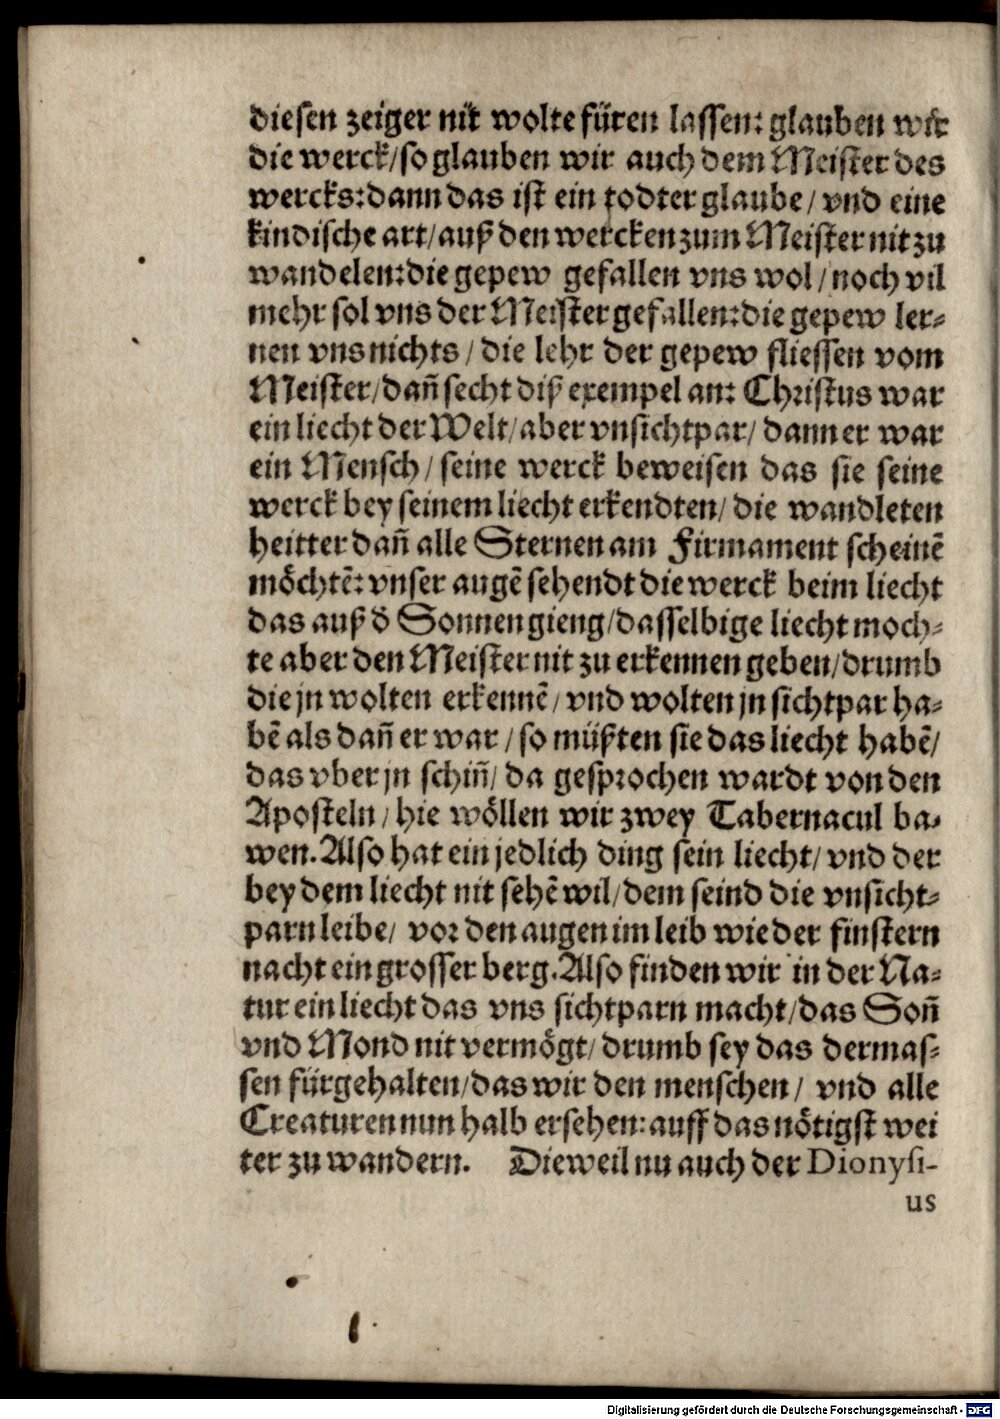 dieſen zeiger nit wolte füren laſſen: glauben wir
die werck/ ſo glauben wir auch dem Meiſter des
wercks: dann das iſt ein todter glaube/ vnd eine
kindiſche art/ auß den wercken zum Meiſter nit zu
wandelen: die gepew gefallen vns wol/ noch vil
mehr ſol vns der Meiſter gefallen: die gepew ler⸗
nen vns nichts/ die lehr der gepew flieſſen vom
Meiſter/ dañ ſecht diß exempel an: Chꝛiſtus war
ein liecht der Welt/ aber vnſichtpar/ dann er war
ein Menſch/ ſeine werck beweiſen das ſie ſeine
werck bey ſeinem liecht erkendten/ die wandleten
heitter dañ alle Sternen am Firmament ſcheinẽ
moͤchtẽ: vnſer augẽ ſehendt die werck beim liecht
das auß d̕ Sonnen gieng/ daſſelbige liecht moch⸗
te aber den Meiſter nit zu erkennen geben/ drumb
die jn wolten erkennẽ/ vnd wolten jn ſichtpar ha⸗
bẽ als dañ er war/ ſo müßten ſie das liecht habẽ/
das vber jn ſchiñ/ da geſpꝛochen wardt von den
Apoſteln/ hie woͤllen wir zwey Tabernacul ba⸗
wen. Alſo hat ein jedlich ding ſein liecht/ vnd der
bey dem liecht nit ſehẽ wil/ dem ſeind die vnſicht⸗
parn leibe/ voꝛ den augen im leib wie der finſtern
nacht ein groſſer berg. Alſo finden wir in der Na⸗
tur ein liecht das vns ſichtparn macht/ das Soñ
vnd Mond nit vermoͤgt/ drumb ſey das dermaſ⸗
ſen fürgehalten/ das wir den menſchen/ vnd alle
Creaturen nun halb erſehen: auff das noͤtigſt wei
ter zu wandern. Dieweil nu auch der Dionyſi-
us
Digitalisierung gefördert durch die Deutsche Forschungsgemeinschaft - DFG